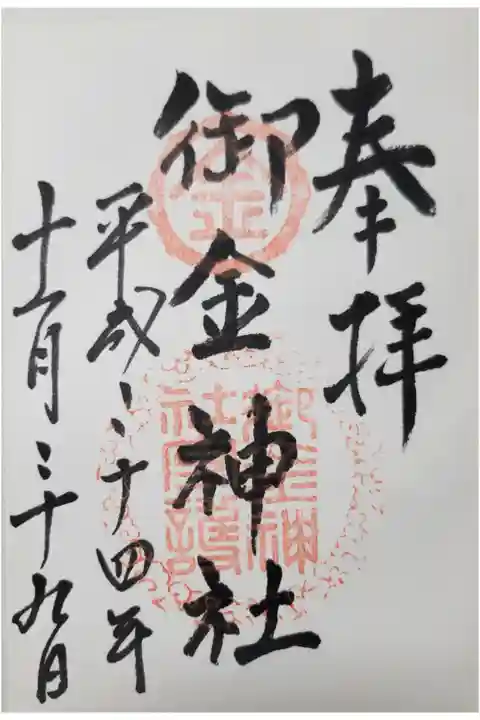 奉拝
御金神社
平成二十四年
十一月二十九日
金
御金神
社守護